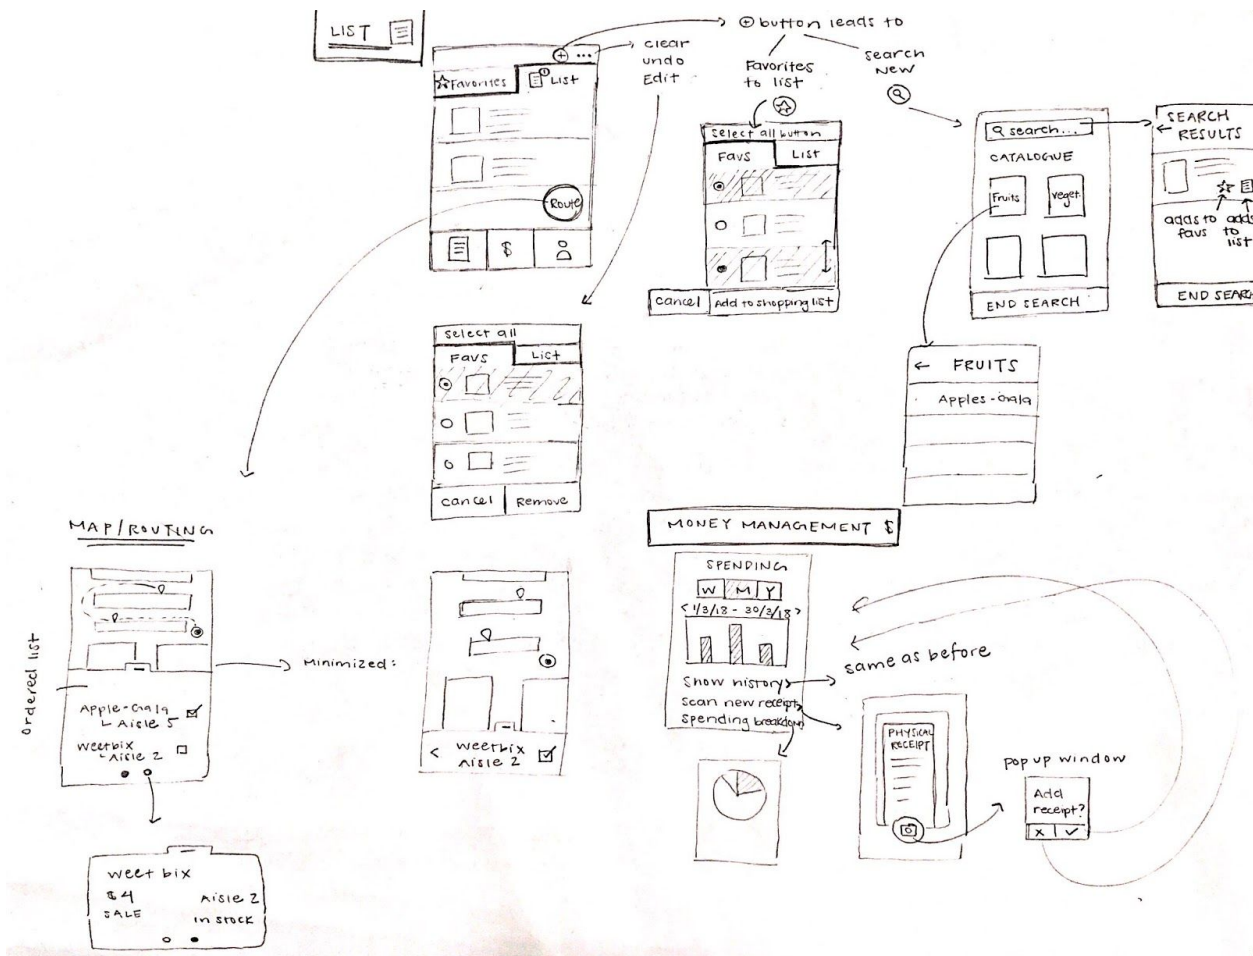 LIST
⊕ button leads to
clear
undo
Edit
Favorites
to list
search
New
Favorites
List
Route
$
Select all button
Favs
List
Cancel
Add to shopping list
search...
CATALOGUE
Fruits
veget.
END SEARCH
SEARCH
RESULTS
adds to
favs
adds
to
list
END SEAR
← FRUITS
Apples - Gala
Select all
Favs
List
Cancel
Remove
MAP/ROUTING
Ordered list
Apple-Gala
Aisle 5
Weetbix
Aisle 2
Minimized:
< Weetbix
Aisle 2
weet bix
$4
SALE
Aisle 2
in stock
MONEY MANAGEMENT $
SPENDING
W M Y
< 1/3/18 - 30/3/18 >
Show history
Scan new receipt
Spending breakdown
same as before
PHYSICAL
RECEIPT
popup window
Add
receipt?